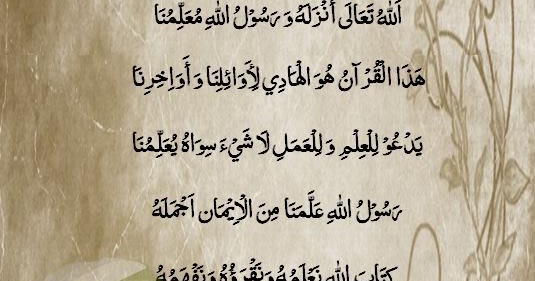 اَللهُ تَعَالَى أَنْزَلَهُ وَ رَسُوْلُ اللهِ مُعَلِّمُنَا
هَذَا الْقُرْآنُ هُوَ الْهَادِي لِأَوَائِلِنَا وَ أَوَاخِرِنَا
يَدْعُوْ لِلْعِلْمِ وَ لِلْعَمَلِ لَا شَيْءَ سِوَاهُ يُعَلِّمُنَا
رَسُوْلُ اللهِ عَلَّمَنَا مِنَ الْإِيْمَان اَجْمَلَهُ
كِتَابَ اللهِ نَعْلَمُهُ وَنَقْرَؤُهُ وَنَفْهَمُهُ